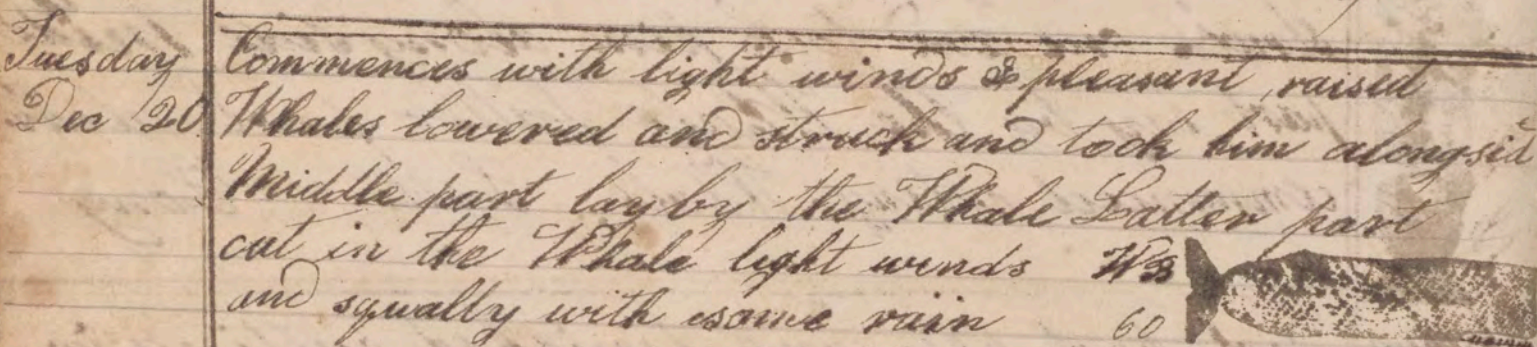 Tuesday Commences with light winds & pleasant, raised
Dec 20 Whales lowered and struck and took him alongsid
Middle part lay by the Whale Latter part
cut in the Whale light winds WB
and squally with some rain 60